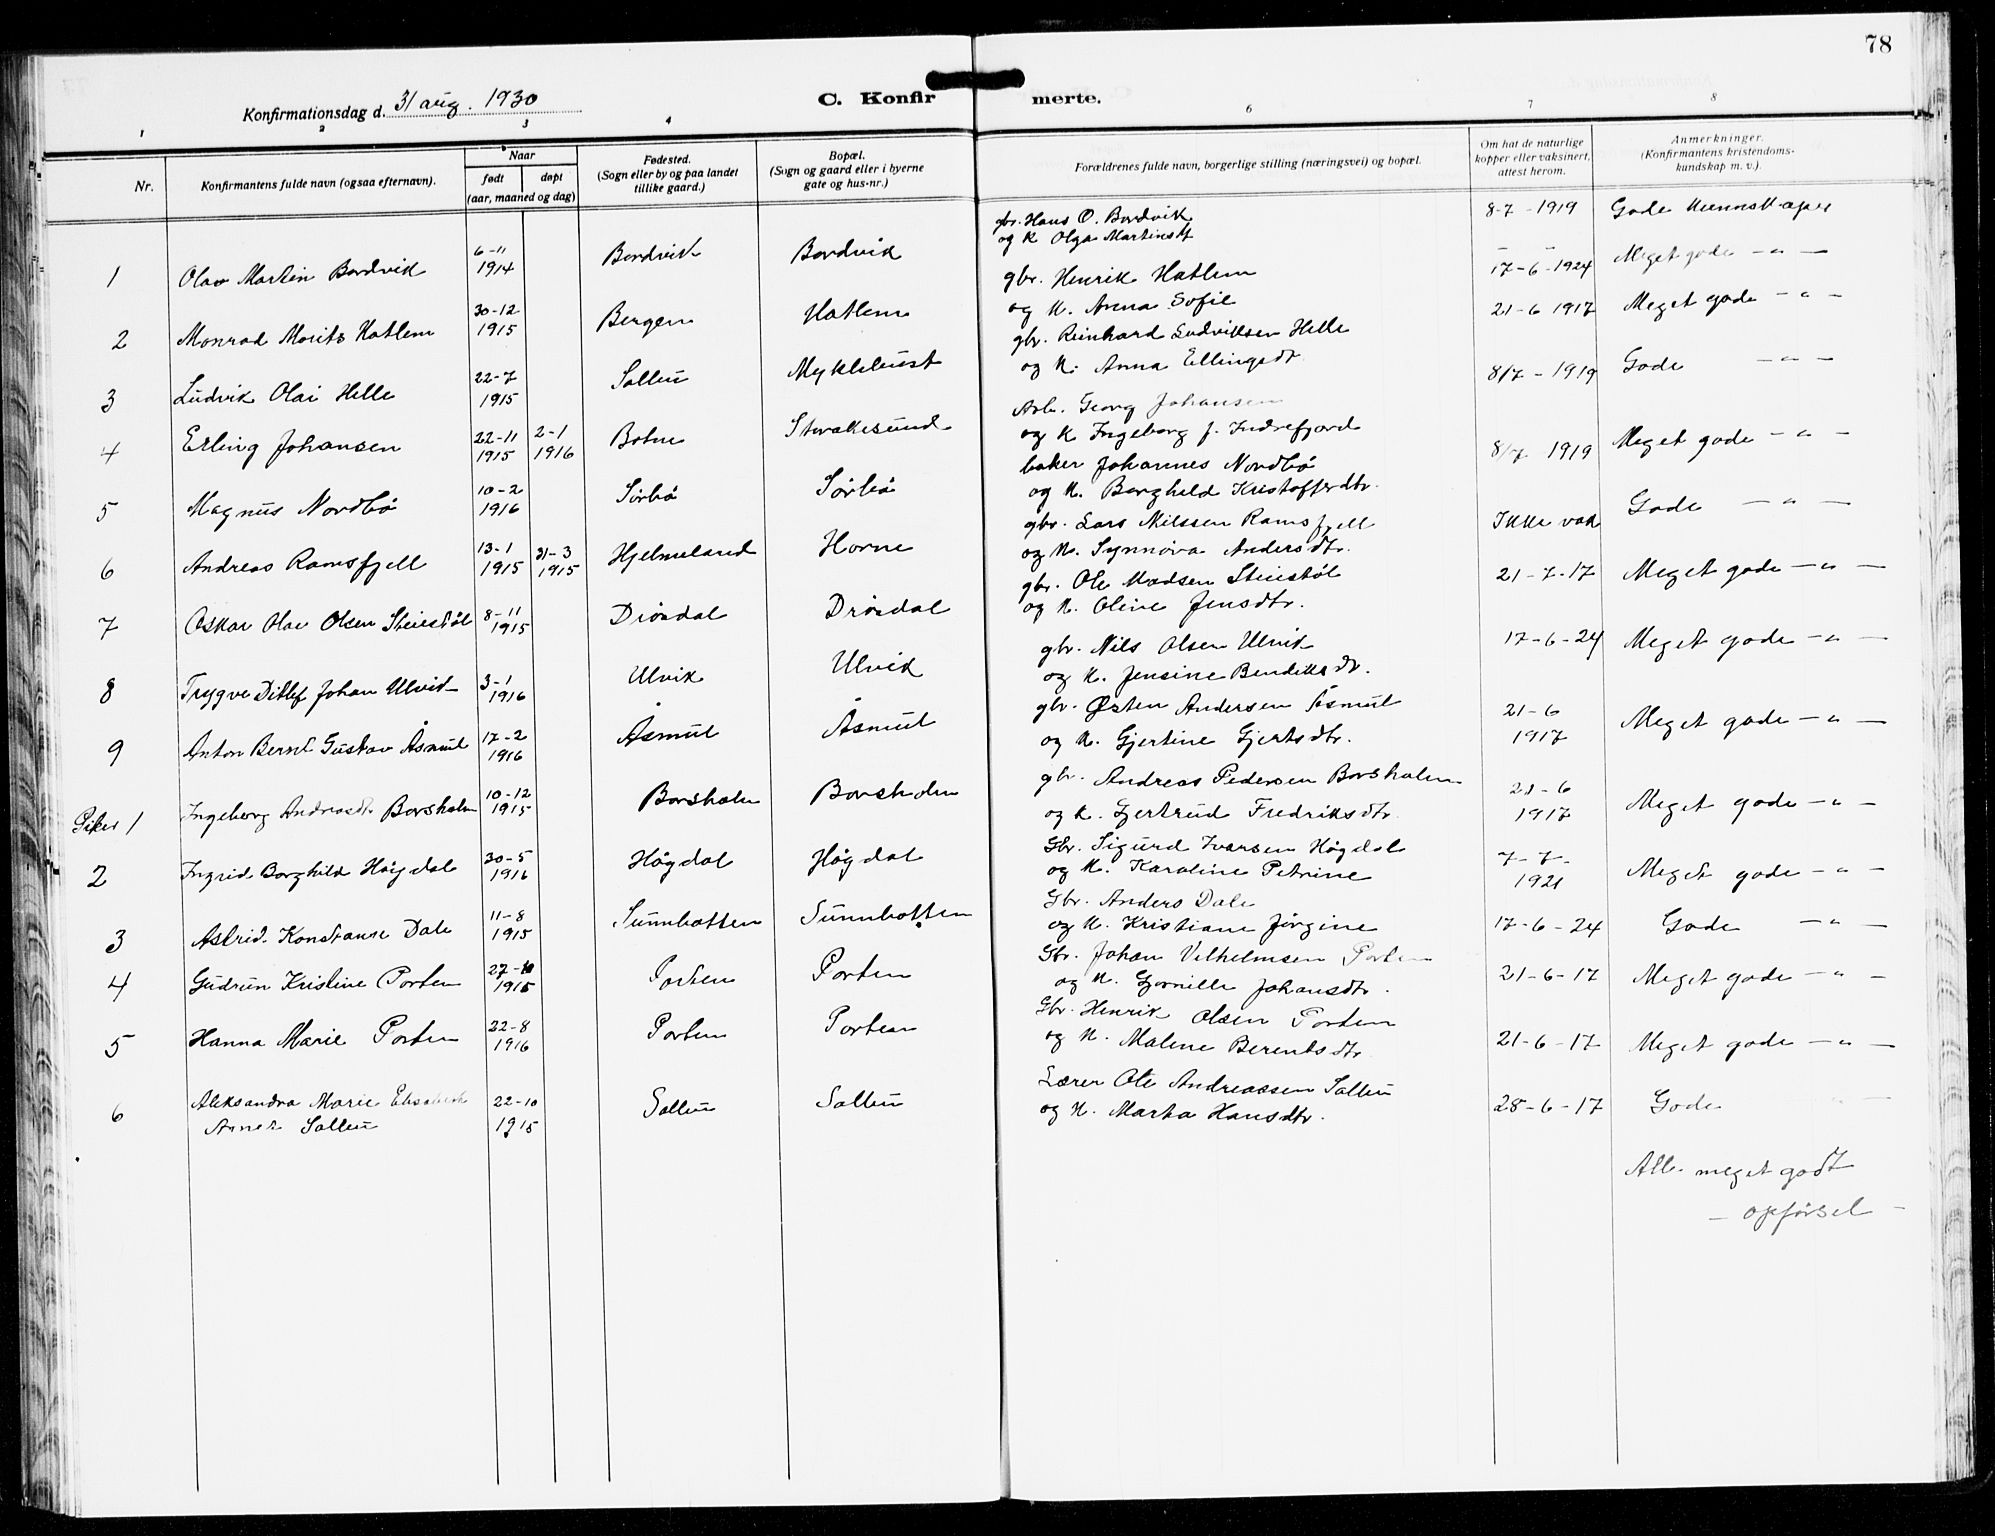 78
Konfirmationsdag d. 31 aug. 1930
C. Konfir merte.
1 2 3 4 6 7 8
Nr.
Konfirmantens fulde navn (ogsaa efternavn).
Naar
født døpt
(aar, maaned og dag)
Fødested.
(Sogn eller by og paa landet
tillike gaard.)
Bopæl.
(Sogn og gaard eller i byerne
gate og hus-nr.)
Forældrenes fulde navn, borgerlige stilling (næringsvei) og bopæl.
Om hat de naturlige
kopper eller vaksinert,
attest herom.
Anmerkninger.
(Konfirmantens kristendoms-
kundskap m. v.).
gbr. Hans O. Bordvik 8-7-1919 Gode Kunnskaper
og K Olga Martinsdt
1 Olav Martin Bordvik 6-11 1914 Bordvik Bordvik
gbr. Henrik Hatlem 17-6-1924 Meget gode - " -
og K. Anna Sofie
2 Monrad Morits Hatlem 30-12 1915 Bergen Hatlem
gbr. Reinhard Ludviksen Helle 21-6 1917 Meget gode - " -
og K. Anna Ellingsdt
3 Ludvik Olai Helle 22-7 1915 Sollii Myklebust
Arb. Georg Johansen 8/7-1919 Gode - " -
og K Ingeborg J. Indrefjord
4 Erling Johansen 22-11 1915 2-1 1916 Botne Strakesund
baker Johannes Nordbö 8/7 1919 Meget gode - " -
og K. Borghild Kristofferdtr.
5 Magnus Nordbö 10-2 1916 Sörbö Sörbö
gbr. Lars Nilssen Ramsfjell Ikke vak Gode - " -
og K. Synnöva Andersdtr.
6 Andreas Ramsfjell 13-1 1915 31-3 1915 Hjelmeland Horne
gbr. Ole Madsen Steiestöl 21-7-17 Meget gode - " -
og K. Oline Jensdtr.
7 Oskar Olav Olsen Steiestöl 8-11 1915 Drösdal Drösdal
gbr. Nils Olsen Ulvik 17-6-24 Meget gode - " -
og K. Jensine Bendiksdr.
8 Trygve Ditlef Johan Ulvik 3-1 1916 Ulvik Ulvik
gbr. Østen Andersen Åsmul 21-6 1917 Meget gode - " -
og K. Gjertine Gjertsdtr.
9 Anton Bernt Gustav Åsmul 17-2 1916 Åsmul Åsmul
gbr. Andreas Pedersen Borsholm 21-6 1917 Meget gode - " -
og K. Gjertrud Fredriksdtr
Piker 1 Ingeborg Andreasdt. Borsholm 10-12 1915 Borsholm Borsholm
Gbr. Sigurd Ivarsen Högdal 7-7-1921 Meget gode - " -
og K. Karoline Petrine
2 Ingrid Borghild Högdal 30-5 1916 Högdal Högdal
Gbr. Anders Dale
og K. Kristiane Jörgine 17-6-24 Gode - " -
3 Astrid Konstanse Dale 11-8 1915 Sunnbotten Sunnbotten
Gbr. Johan Vilhelmsen Porten 21-6-17 Meget gode - " -
og K. Johansdtr.
4 Gudrun Kristine Porten 27-10 1915 Porten Porten
Gbr. Henrik Olsen Porten 21-6-17 Meget gode - " -
og K. Malene Berentsdtr
5 Hanna Marie Porten 22-8 1916 Porten Porten
Lærer Ole Andreassen Sollii
6 Aleksandra Marie Elisabeth 22-10 1915 Sollii Sollii og K. Marta Hansdtr. 28-6-17 Gode - -
Agnes Sollii
Alle meget godt
- opførsel -